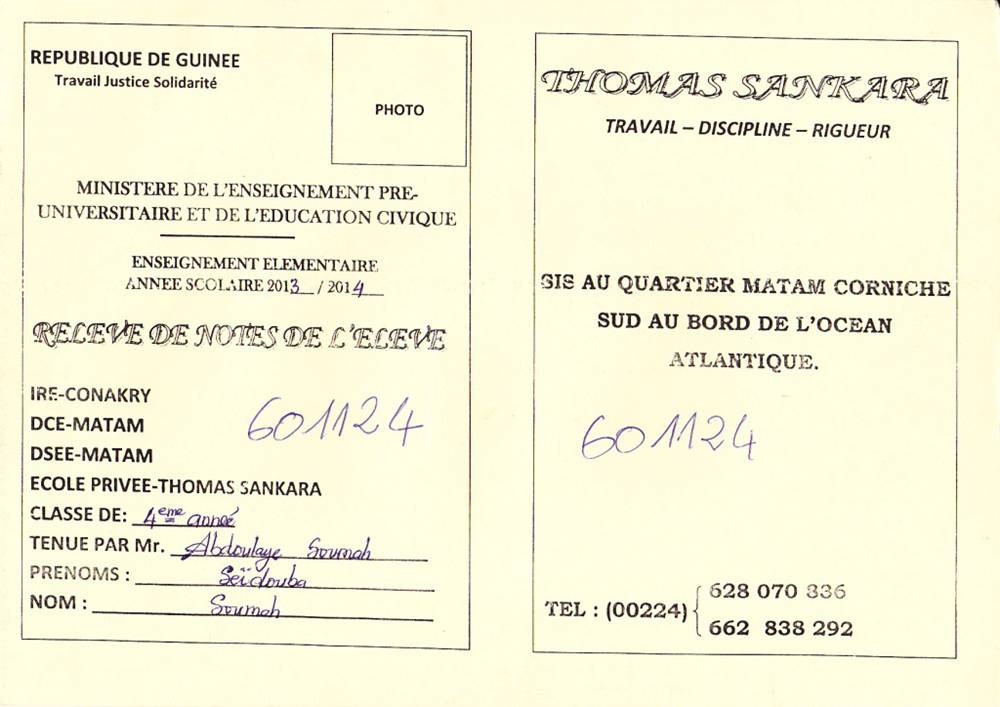 REPUBLIQUE DE GUINEE
Travail Justice Solidarité
PHOTO
MINISTERE DE L'ENSEIGNEMENT PRE-
UNIVERSITAIRE ET DE L'EDUCATION CIVIQUE
ENSEIGNEMENT ELEMENTAIRE
ANNEE SCOLAIRE 2013 / 2014
RELEVE DE NOTES DE L'ELEVE
IRE-CONAKRY
DCE-MATAM
601124
DSEE-MATAM
ECOLE PRIVEE-THOMAS SANKARA
CLASSE DE: 4eme année
TENUE PAR Mr. Abdoulaye Soumah
PRENOMS : Seïdouba
NOM : Soumah
THOMAS SANKARA
TRAVAIL – DISCIPLINE – RIGUEUR
SIS AU QUARTIER MATAM CORNICHE
SUD AU BORD DE L'OCEAN
ATLANTIQUE.
601124
TEL : (00224)
628 070 336
662 838 292